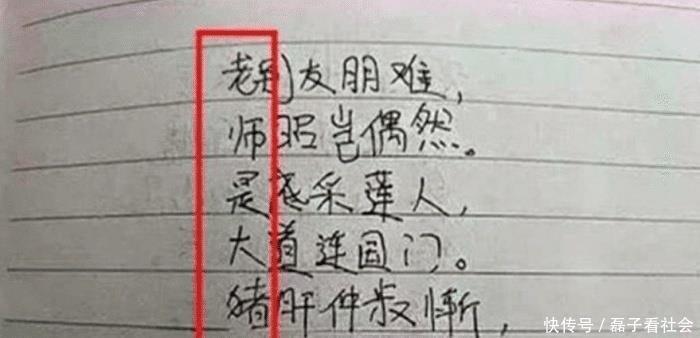 老到友朋难，
师昭岂偶然。
是底采莲人，
大道连国门。
猪肝仲叔惭，
快传号／磊子看社会